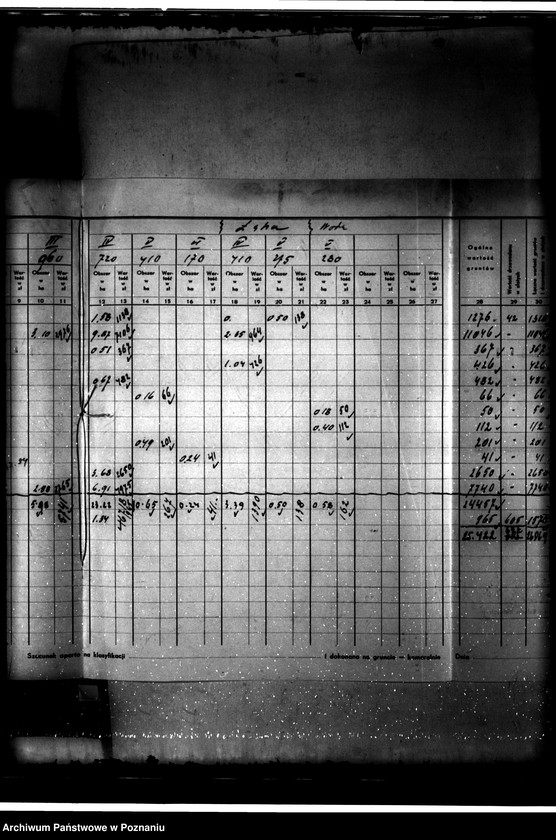 Łąka Woda
III IV V VI IV V V
960 720 410 170 410 275 280
Obszar w ha Wartość w zł Obszar w ha Wartość w zł Obszar w ha Wartość w zł Obszar w ha Wartość w zł Obszar w ha Wartość w zł Obszar w ha Wartość w zł Obszar w ha Wartość w zł Obszar w ha Wartość w zł Obszar w ha Wartość w zł Ogólna wartość gruntów Wartość drzewostanu w złotych
9 10 11 12 13 14 15 16 17 18 19 20 21 22 23 24 25 26 27 28 29 30
1,58 1138 0. 0.50 138 1276 42
3.10 2976 9.87 7106 2.35 964 11046 -
0.51 367 367 - 367
1.04 426 426 - 426
0.67 482 482 - 482
0.16 66 66 - 66
0.18 50 50 - 50
0.40 112 112 - 112
0.49 201 201 - 201
0.24 41 41 - 41
3.68 2650 2650 - 2650
2.88 2765 6.91 4975 7740 - 7740
5.98 23.22 0.65 267 0.24 41 3.39 1390 0.50 138 0.58 162 24457
1.34 965 605
25.422
Szacunek oparto na klasyfikacji
i dokonano na gruncie — biurzalnie
Dnia
Archiwum Państwowe w Poznaniu